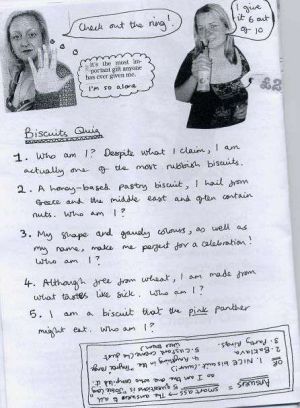 Check out the ring!
I give
it 6 out
of 10
it's the most im-
portant gift anyone
has ever given me.
I'm so alone
22
Biscuits Quiz
1. Who am I? Despite what I claim, I am
actually one of the most rubbish biscuits.
2. A honey-based pastry biscuit, I hail from
Greece and the middle east and often contain
nuts. Who am I?
3. My shape and gaudy colours, as well as
my name, make me perfect for a celebration!
Who am I?
4. Although free from wheat, I am made from
what tastes like sick. Who am I?
5. I am a biscuit that the pink panther
might eat. Who am I?
Answers = smart arse → The answers to all
5 questions is
as I am the one who
1. NICE Biscuit (um!!)
2. Baklava
3. Party Rings.
4. Anything in the "
range
5. Custard Creme